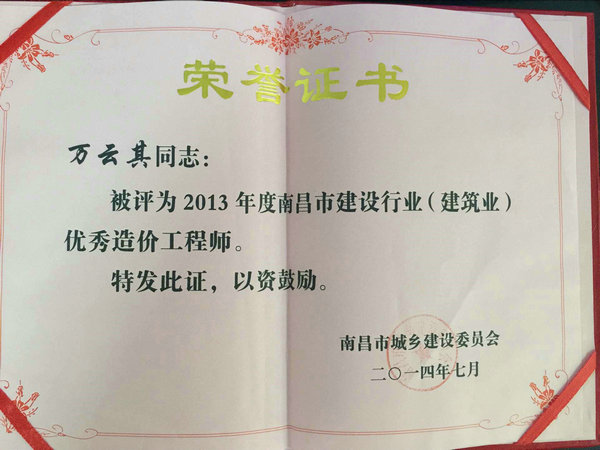 荣誉证书
万云其同志：
被评为2013年度南昌市建设行业（建筑业）
优秀造价工程师。
特发此证，以资鼓励。
南昌市城乡建设委员会
二〇一四年七月